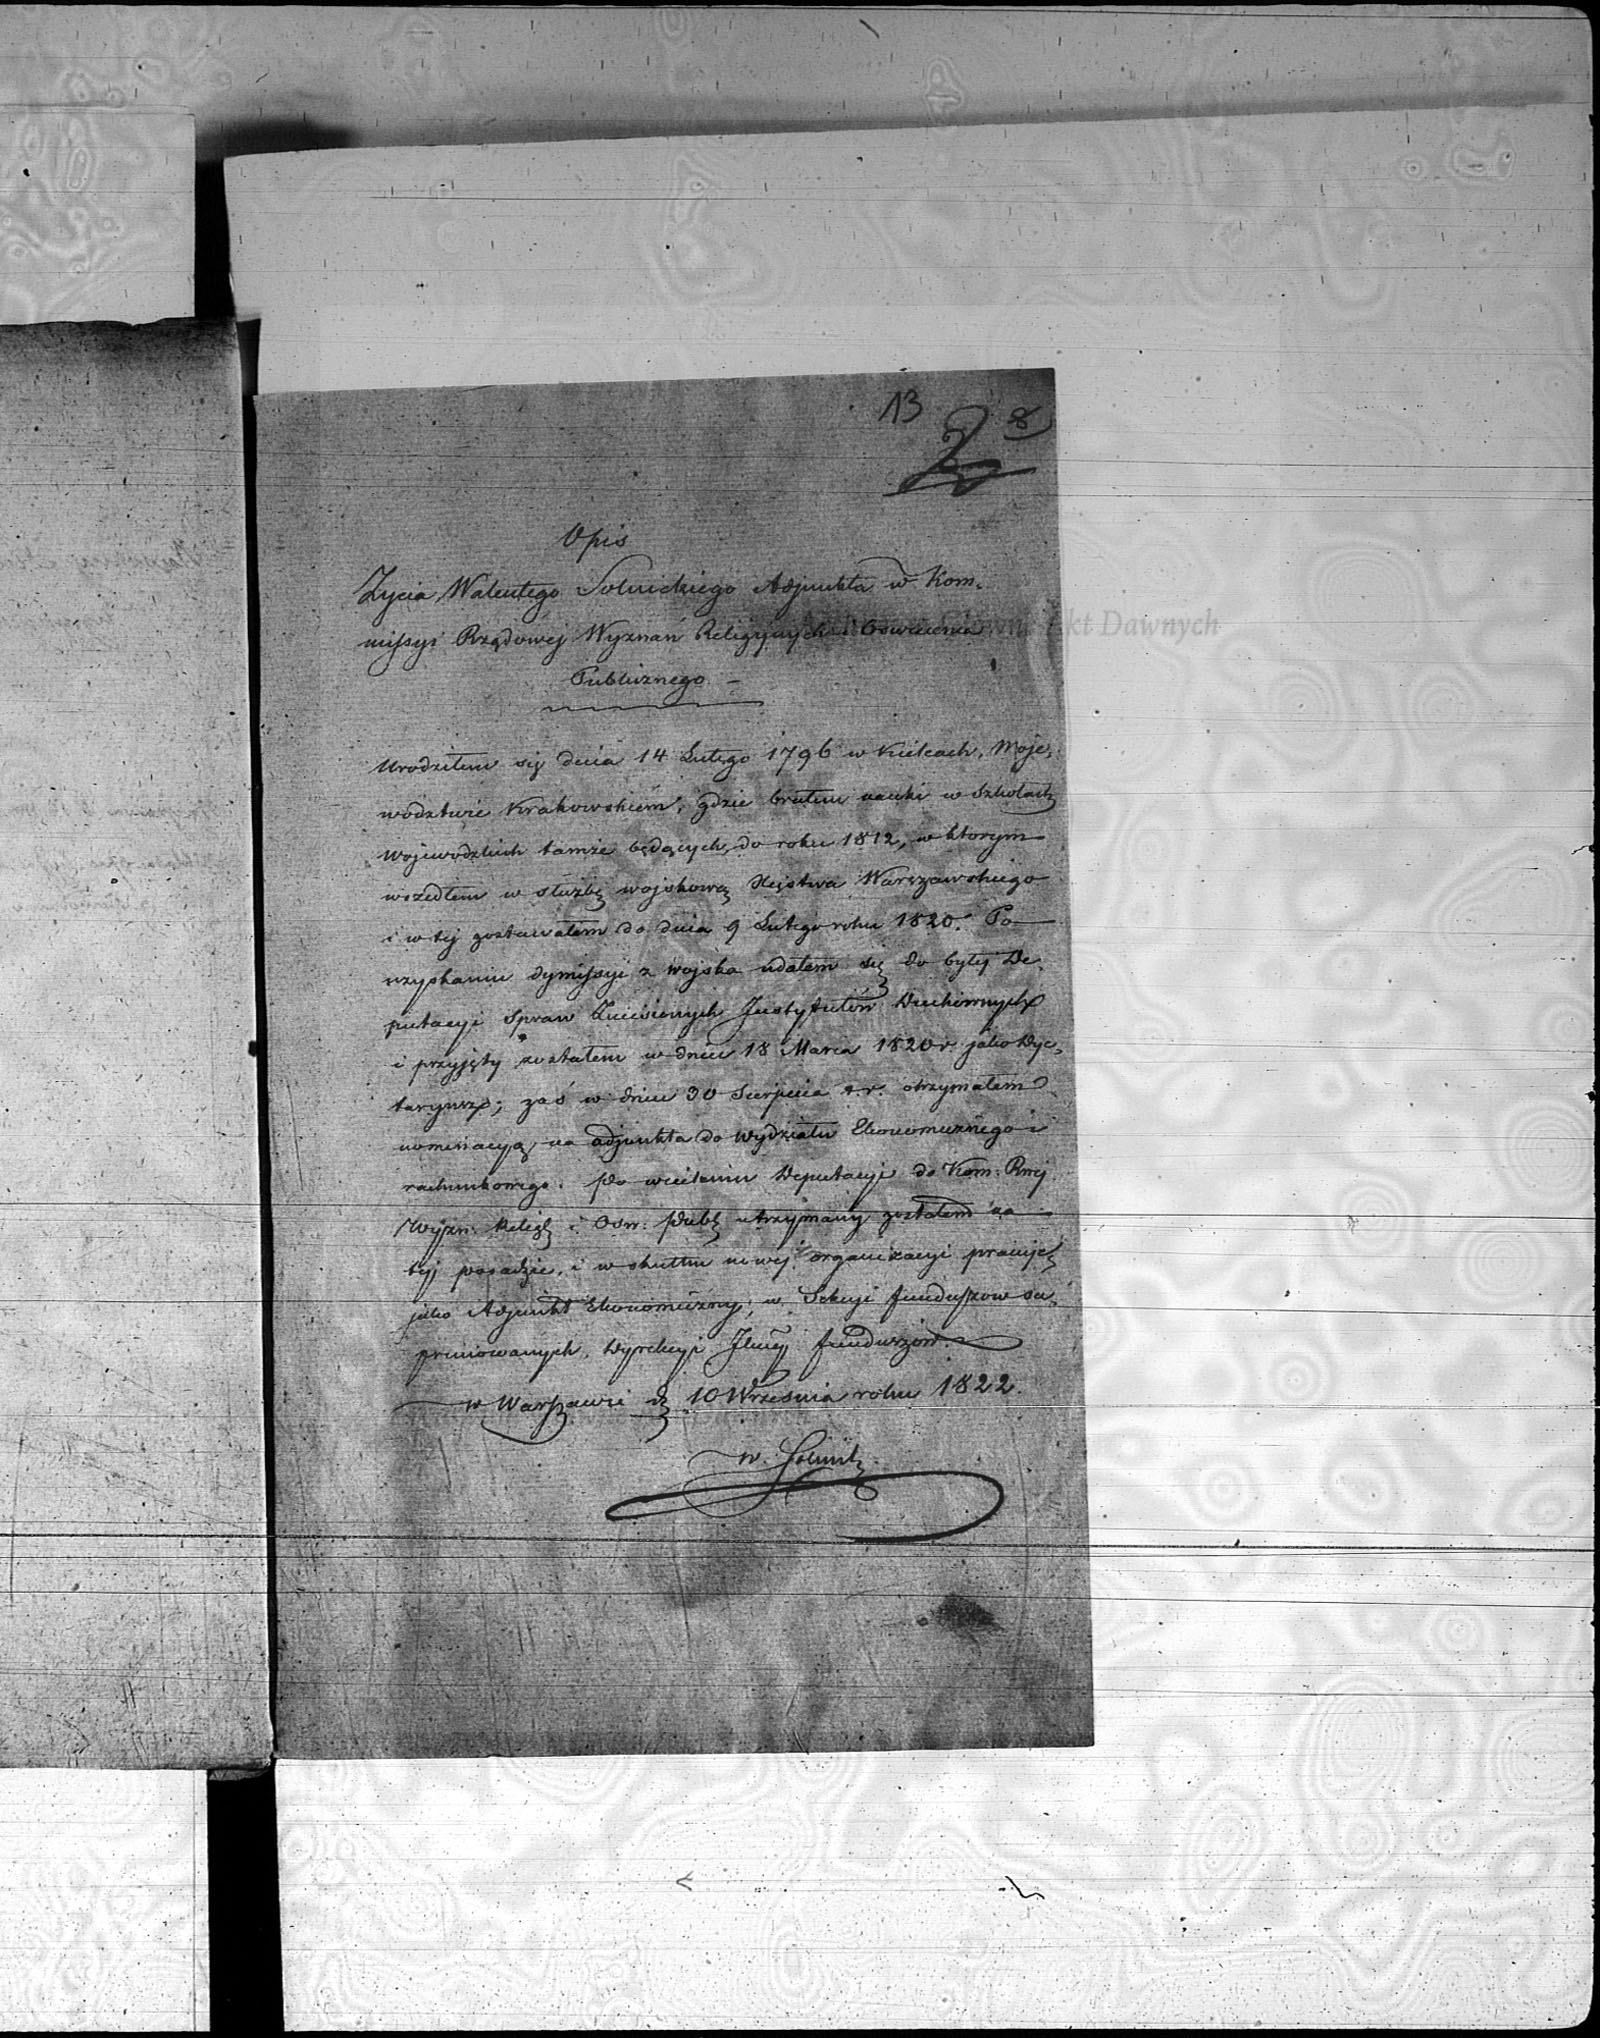 13
8
Opis
Życia Walentego Solnickiego Adjunkta w Kom-
missyi Rządowej Wyznań Religijnych i Oswiecenia
Publicznego. -
Urodziłem się dnia 14 Lutego 1796 w Kielcach, Woje-
wodztwie Krakowskiém, gdzie brałem nauki w Szkołach
Wojewodzkich tamże będących, do roku 1812, w ktorym
wszedłem w służbę wojskową Xięstwa Warszawskiego
i w tej zostawałem do dnia 9 Lutego roku 1820. Po
uzyskaniu dymissyi z wojska udałem się do byłej De-
putacyi Spraw Zniesionych Instytutów Duchownych
i przyjęty zostałem w dniu 18 Marca 1820 r. jako Dye-
taryusz; zaś w dniu 30 Sierpnia t. r. otrzymałem
nominacyą na adjunkta do Wydziału Ekonomicznego i
rachunkowego. Po wcieleniu Deputacyi do Kom: Rzej
Wyzn: Relig: i Ośw: Publ: utrzymany zostałem na
tej posadzie, i w skutku nowej organizacyi pracuję
jako Adjunkt Ekonomiczny, w Sekcyi funduszow su-
primowanych, Dyrekcyi Jlnéj funduszów.
w Warszawie d. 10 Września roku 1822.
W. Solnicki
Archiwum Główne Akt Dawnych